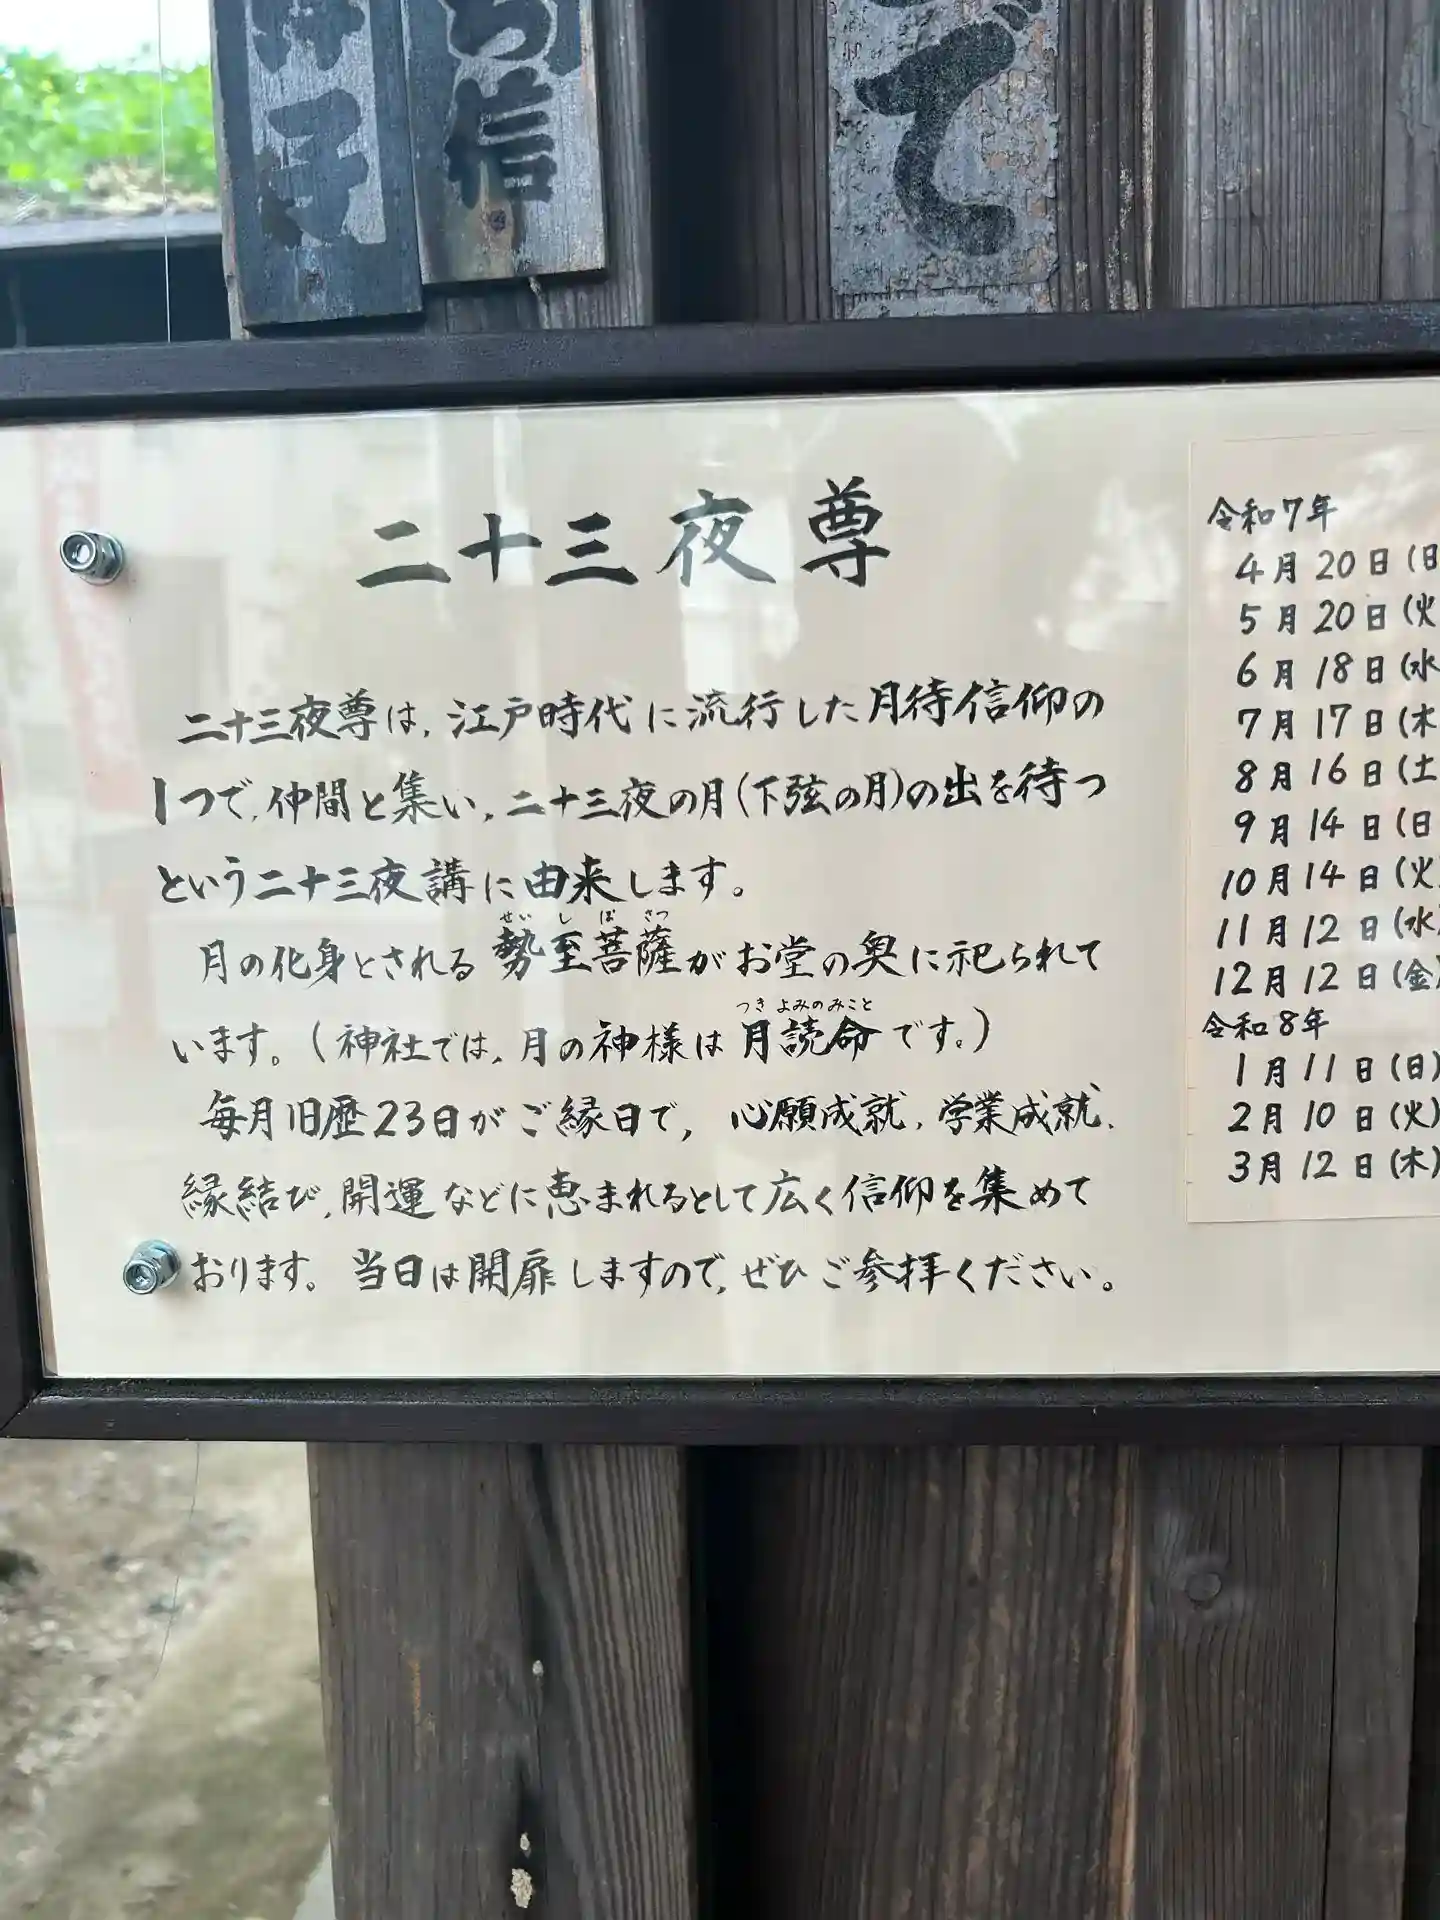 ち信
で
二十三夜尊
二十三夜尊は、江戸時代に流行した月待信仰の
1つで、仲間と集い、二十三夜の月(下弦の月)の出を待つ
という二十三夜講に由来します。
せいしぼさつ
月の化身とされる勢至菩薩がお堂の奥に祀られて
つきよみのみこと
います。(神社では、月の神様は月読命です。)
毎月旧歴23日がご縁日で、心願成就、学業成就、
縁結び、開運などに恵まれるとして広く信仰を集めて
おります。当日は開扉しますので、ぜひご参拝ください。
令和7年
4月20日(日
5月20日(火
6月18日(水
7月17日(木
8月16日(土
9月14日(日
10月14日(火)
11月12日(水)
12月12日(金)
令和8年
1月11日(日)
2月10日(火)
3月12日(木)